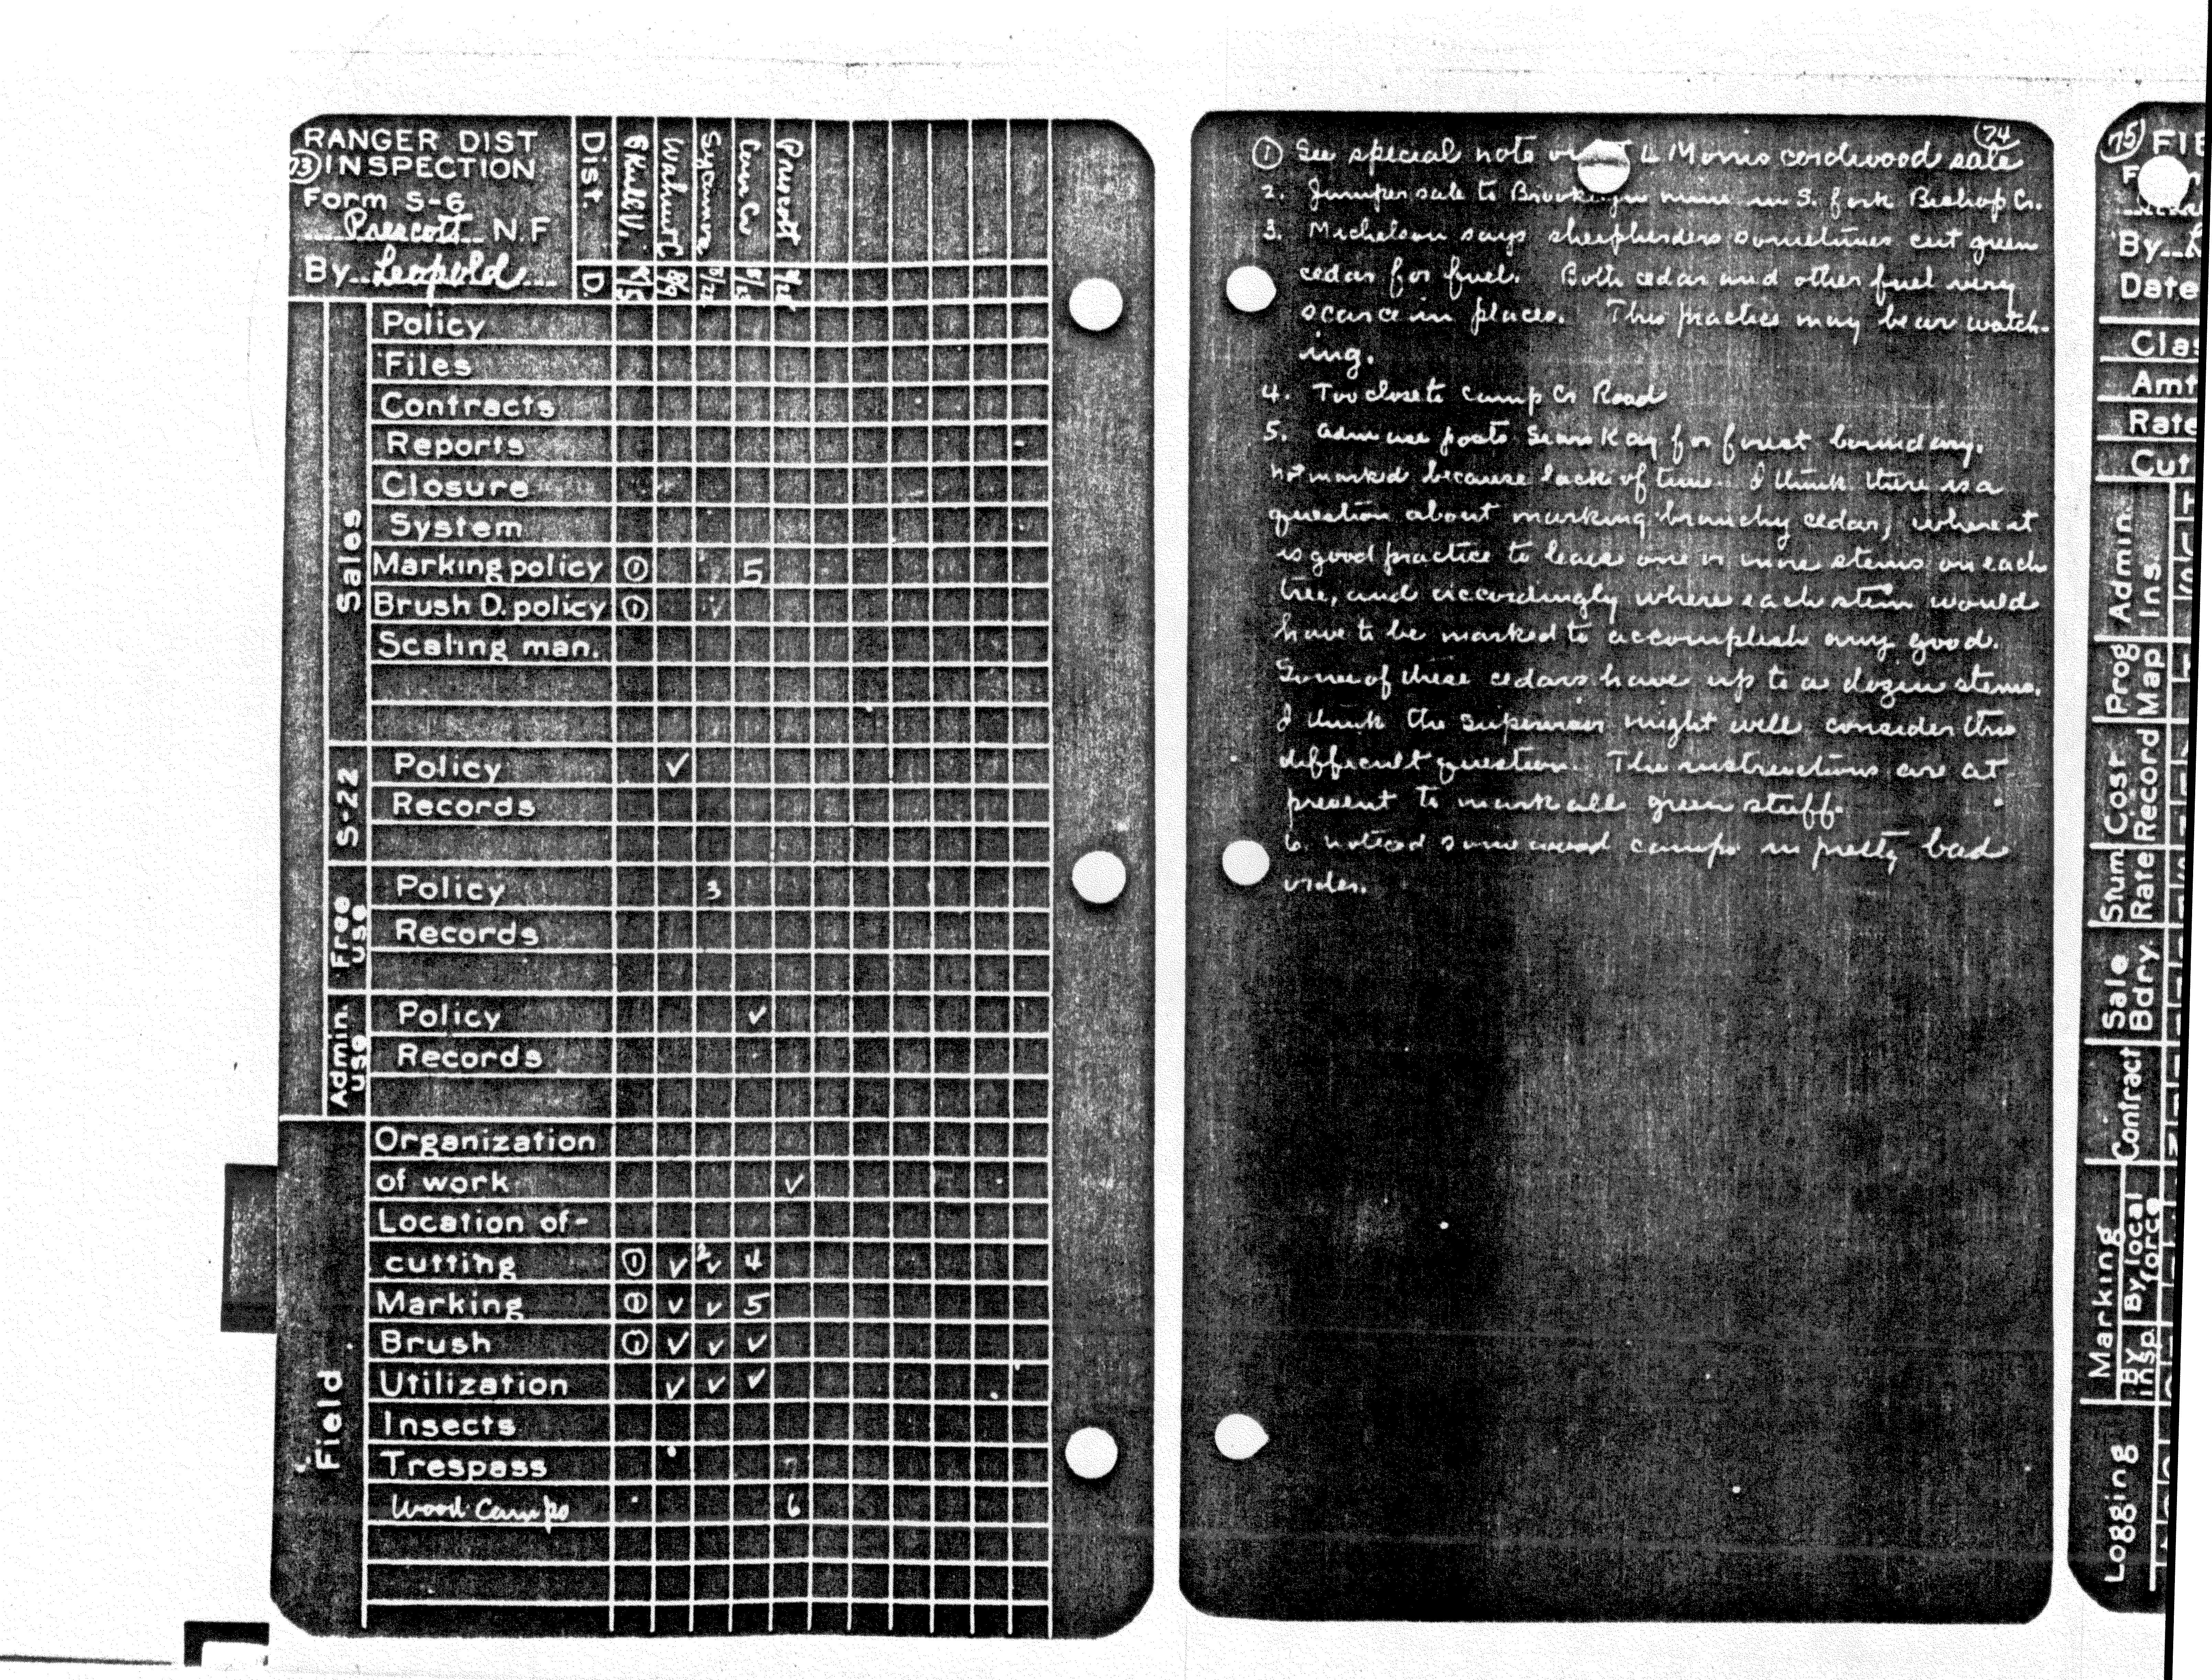 RANGER DIST
73 INSPECTION
Form S-6
Prescott N.F
By Leopold
Dist.
Walnut C
Sycamore
Prescott
D.
8/9
Sales
Policy
Files
Contracts
Reports
Closure
System
Marking policy ① 5
Brush D. policy ① ✓
Scaling man.
S-22
Policy ✓
Records
Free use
Policy 3
Records
Admin. use
Policy ✓
Records
Field
Organization
of work ✓
Location of-
cutting ① ✓ 2 ✓ 4
Marking ① ✓ ✓ 5
Brush ① ✓ ✓ ✓
Utilization ✓ ✓ ✓
Insects
Trespass
Wood Camps 6
74
① See special note 4 Morris cordwood sale
2. Juniper sale to Brooklyn mine in S. fork Bishop Cr.
3. Michelson says sheepherders sometimes cut green
cedar for fuel. Both cedar and other fuel very
scarce in places. This practice may bear watch-
ing.
4. Too close to Camp Cr Road
5. Adm use posts for forest boundary.
not marked because lack of time. I think there is a
question about marking branchy cedar, where it
is good practice to leave one or more stems on each
tree, and accordingly where each stem would
have to be marked to accomplish any good.
Some of these cedars have up to a dozen stems.
I think the supervisor might well consider this
difficult question. The instructions are at
present to mark all green stuff.
6. noticed some wood camps in pretty bad
order.
75 FIE
By
Date
Clas
Amt
Rate
Cut
Admin. Ins.
Prog Map
Cost Record
Stum Rate
Sale Bdry.
Contract
Marking
By insp
By local force
Logging